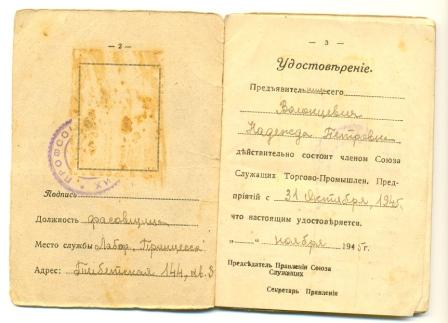 — 2 —
ПРОФСО
Подпись
Должность фасовщица
Место службы Лабор. "Принцесса"
Адрес: Тибетская 144, кв. 3
— 3 —
Удостовѣреніе.
Предъявительница сего
Надежда Петровна
дѣйствительно состоит членом Союза
Служащих Торгово-Промышлен. Пред-
пріятій с 31 Октября, 1945
что настоящим удостовѣряется.
„ — " ноября 1945 г.
Предсѣдатель Правленія Союза
Служащих
Секретарь Правленія